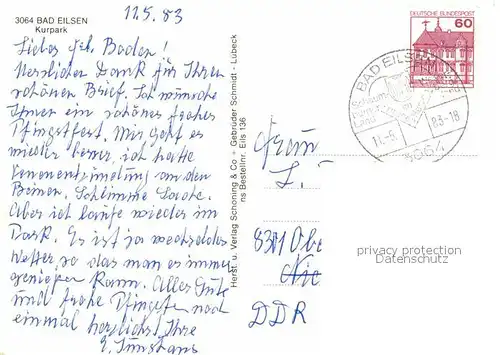 11.5.83
3064 BAD EILSEN
Kurpark
Liebe Fah. Baden!
Herzlichen Dank für Ihren
schönen Brief. Ich wünsche
Ihnen ein schönes frohes
Pfingstfest. Mir geht es
wieder besser, ich hatte
Venenentzündung an den
Beinen. Schlimme Sache.
Aber ich laufe wieder im
Park. Es ist ja wechselndes
Wetter, so das man es immer
genießen kann. Alles Gute
und frohe Pfingsten noch
einmal herzlichst Ihre
Herst. u. Verlag Schöning & Co + Gebrüder Schmidt - Lübeck
ns Bestellnr. Eils 136
DEUTSCHE BUNDESPOST
60
BAD EILSEN
11.-5. 83-18
3064
Frau
L.
DDR
privacy protection
Datenschutz